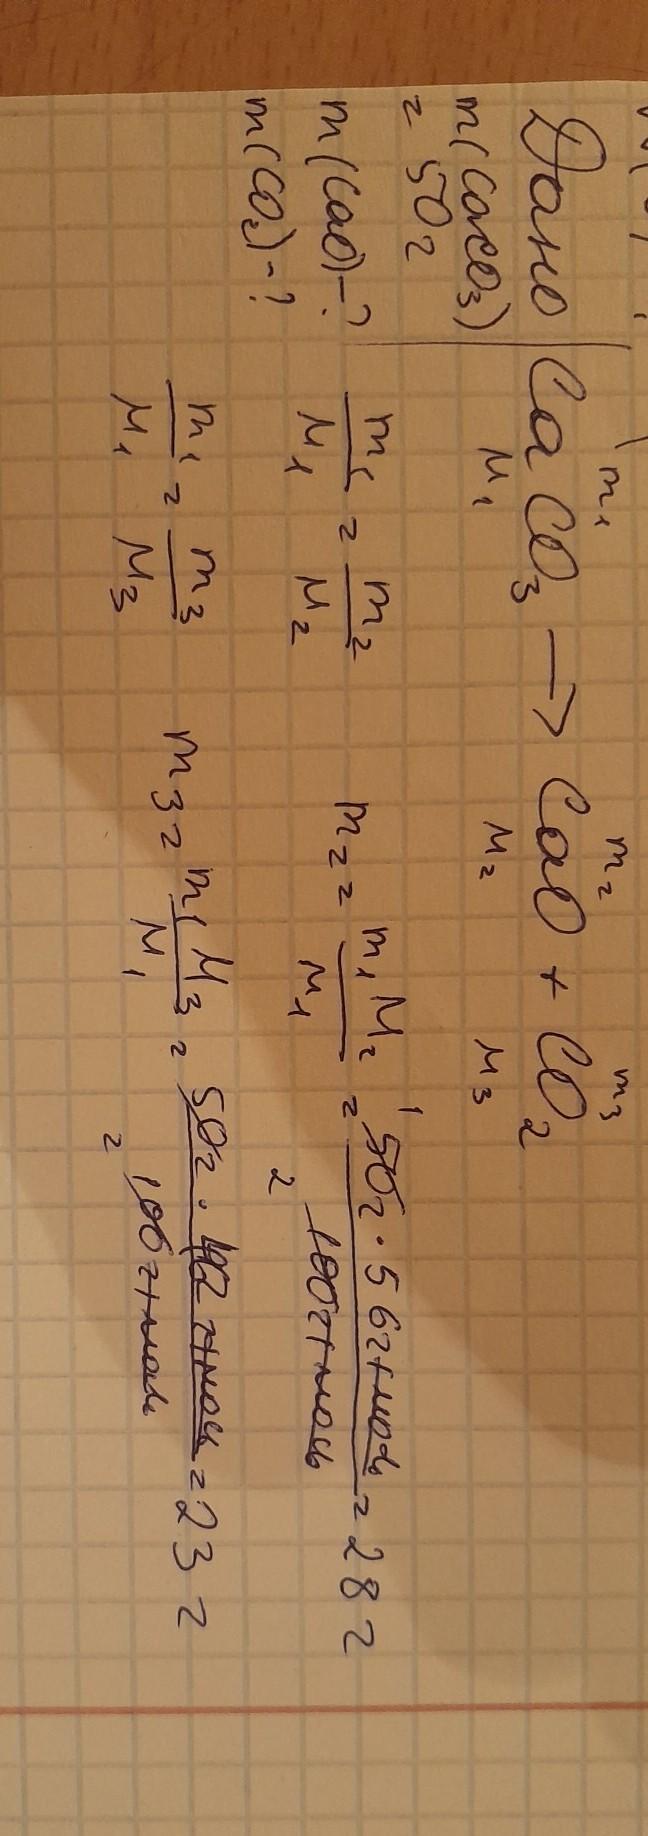 Дано
m(CaCO₃)
= 50г
m(CaO)-?
m(CO₂)-?
m₁ m₂ m₃
CaCO₃ → CaO + CO₂
M₁ M₂ M₃
m₁/M₁ = m₂/M₂ m₂ = m₁M₂/M₁ = 50г · 56г/моль / 100г/моль = 28г
1 2
m₁/M₁ = m₃/M₃ m₃ = m₁M₃/M₁ = 50г · г/моль / 100г/моль = 23г
2